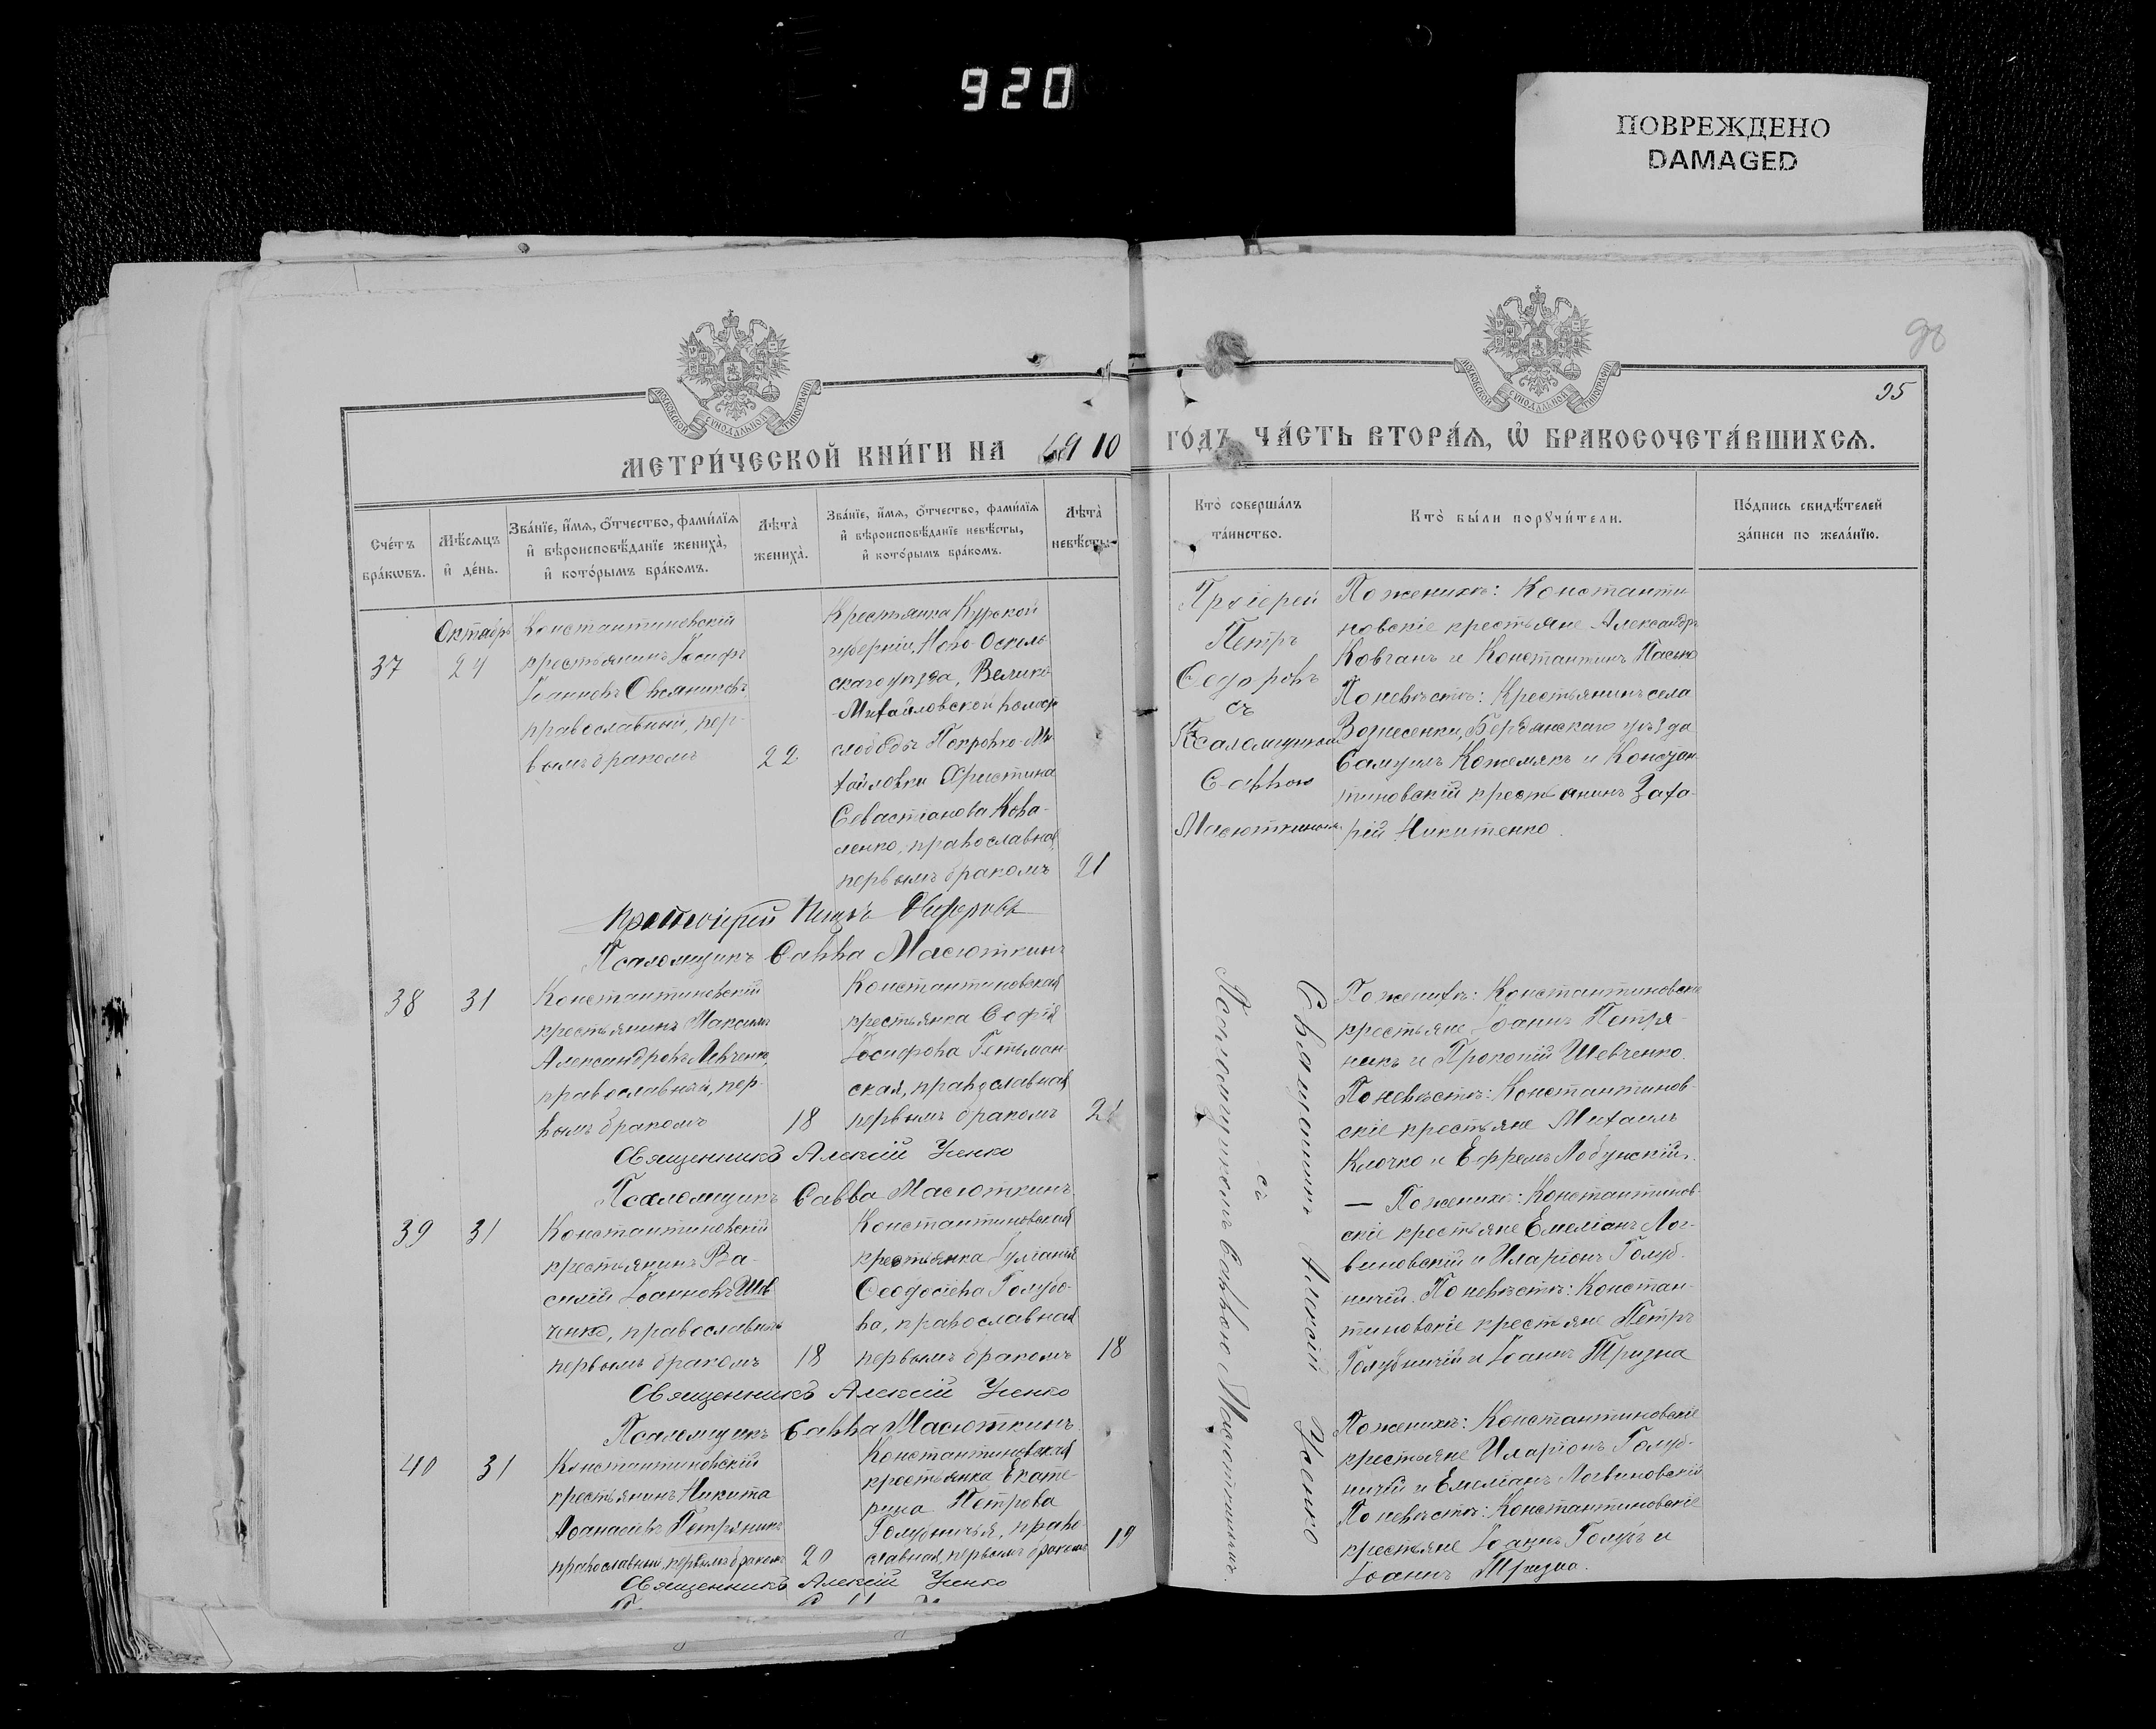 920
ПОВРЕЖДЕНО
DAMAGED
95
МОСКОВСКОЙ СѴНОДАЛЬНОЙ ТИПОГРАФІИ
МОСКОВСКОЙ СѴНОДАЛЬНОЙ ТИПОГРАФІИ
МЕТРИ́ЧЕСКОЙ КНИ́ГИ НА 1910 ГО́ДЪ, ЧА́СТЬ ВТОРА́Ѧ, Ѡ҆ БРАКОСОЧЕТА́ВШИХСѦ.
Сче́тъ бра́кѡвъ.
Мѣ́сѧцъ и҆ де́нь.
Зва́нїе, и҆́мѧ, ѻ҆́тчество, фами́лїѧ и҆ вѣроисповѣ́данїе жениха̀, и҆ кото́рымъ бра́комъ.
Лѣ̑та̀ жениха̀.
Зва́нїе, и҆́мѧ, ѻ҆́тчество, фами́лїѧ и҆ вѣроисповѣ́данїе невѣ́сты, и҆ кото́рымъ бра́комъ.
Лѣ̑та̀ невѣ́сты.
Кто̀ соверша́лъ та́инство.
Кто̀ бы́ли порꙋчи́тели.
По́дпись свидѣ́телей за́писи по жела́нїю.
Октябрь
37
24
Константиновскій
крестьянинъ Іосифъ
Іоанновъ Овсянниковъ
православный, пер-
вымъ бракомъ
22
Крестьянка Курской
губерніи, Ново-Осколь
скаго уѣзда, Велико-
Михайловской волости
слободы Покровко-Ми
хайловки Христина
Севастіанова Кова-
ленко, православная
первымъ бракомъ
21
Протоіерей
Петръ
Ѳедоровъ
съ
Псаломщикомъ
Саввою
Масюткинымъ
По женихѣ: Константи
новскіе крестьяне Александръ
Ковганъ и Константинъ Пасько
По невѣстѣ: Крестьянинъ села
Вознесенки, Бердянскаго уѣзда
Самуилъ Кожемякъ и Констан
тиновскій крестьянинъ Заха-
рій Никитенко.
Протоіерей Петръ Ѳедоровъ
Псаломщикъ Савва Масюткинъ
38
31
Константиновскій
крестьянинъ Максимъ
Александровъ Левченко,
православный, пер-
вымъ бракомъ
18
Константиновская
крестьянка Софія
Іосифова Гетьман-
ская, православная
первымъ бракомъ
21
По женихѣ: Константиновскіе
крестьяне Іоаннъ Петря-
никъ и Прокопій Шевченко.
По невѣстѣ: Константинов-
скіе крестьяне Михаилъ
Клочко и Ефремъ Лобунскій.
Священникъ Алексій Усенко
Псаломщикъ Савва Масюткинъ
39
31
Константиновскій
крестьянинъ Ва-
силій Іоанновъ Шев
ченко, православный
первымъ бракомъ
18
Константиновская
крестьянка Іуліанія
Ѳеодосіева Голубо-
ва, православная
первымъ бракомъ
18
— По женихѣ: Константинов-
скіе крестьяне Емеліанъ Лог-
виновскій и Иларіонъ Голуб-
ничій. По невѣстѣ: Констан-
тиновскіе крестьяне Петръ
Голубничій и Іоаннъ Тризна
Священникъ Алексій Усенко
Псаломщикъ Савва Масюткинъ
40
31
Константиновскій
крестьянинъ Никита
Аѳанасіевъ Петряникъ
православный, первымъ бракомъ
20
Константиновская
крестьянка Екате-
рина Петрова
Голубничья, право
славная, первымъ бракомъ
19
По женихѣ: Константиновскіе
крестьяне Иларіонъ Голуб-
ничій и Емеліанъ Логвиновскій
По невѣстѣ: Константиновскіе
крестьяне Іоаннъ Голубъ и
Іоаннъ Тризна.
Священникъ Алексій Усенко
Священникъ Алексій Усенко
съ
Псаломщикомъ Саввою Масюткинымъ.